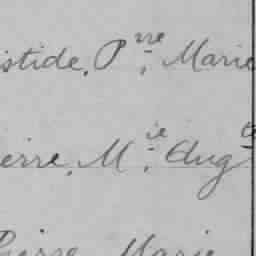 istide, Pre Marie
ierre, Mie Augte
Pierre Marie